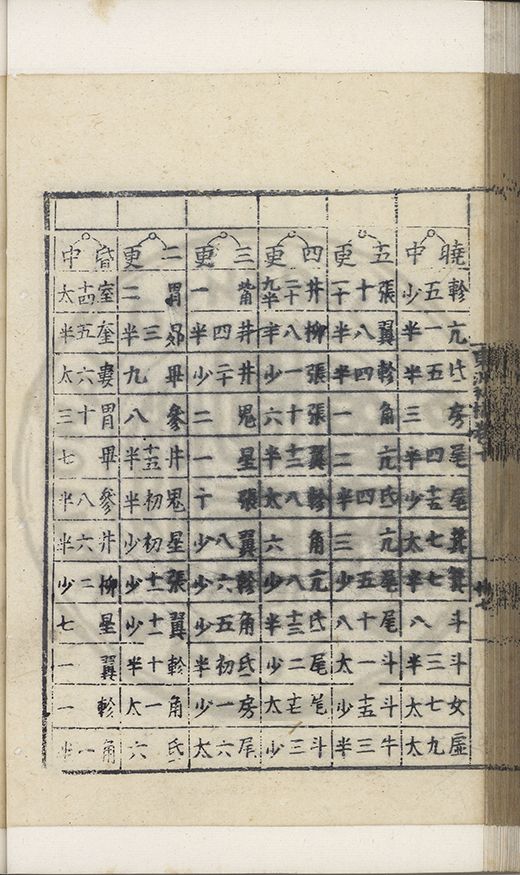 曉中 五更 四更 三更 二更 昏中
軫五少 張十 井二十九半 觜一 胃二 室十四太
亢一半 翼八半 柳八半 井四半 昴三半 奎五半
氐五半 軫四半 張一少 井二十少 畢九半 婁六太
房三 角一 張十六 鬼二 參八 胃十三
尾四半 亢二 翼十二半 星一 井十五半 畢七
尾少 氐四半 軫八太 張十 鬼初半 參八半
箕七太 亢三 角六 翼八少 星初少 井六半
箕七半 尾五少 亢八少 軫六少 張十一少 柳二少
斗八 尾十八 氐十三半 角五少 翼十一少 星七
斗三半 斗一太 尾二少 氐初半 軫十半 翼一
女七太 斗十五少 尾十七太 房一少 角一太 軫一
虛九太 牛三半 斗三少 尾六太 氐六 角一半